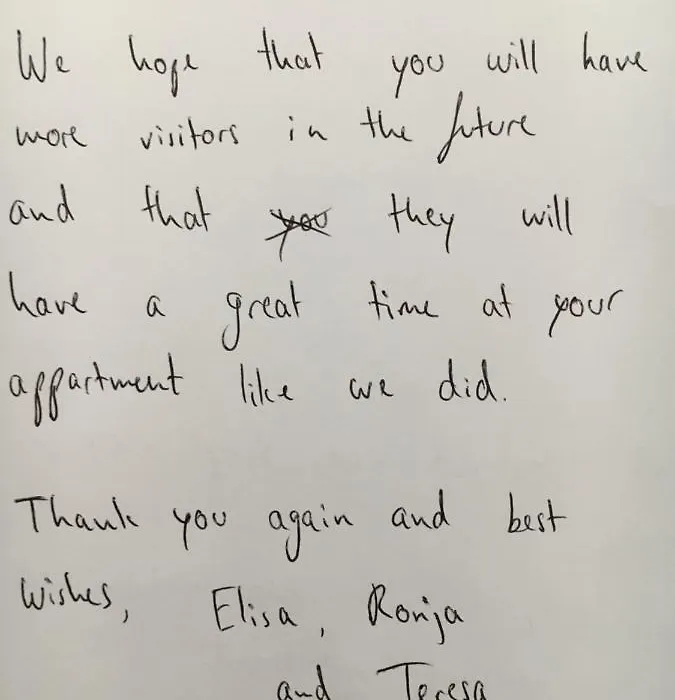 We hope that you will have
more visitors in the future
and that you they will
have a great time at your
appartment like we did.
Thank you again and best
wishes, Elisa, Ronja
and Teresa